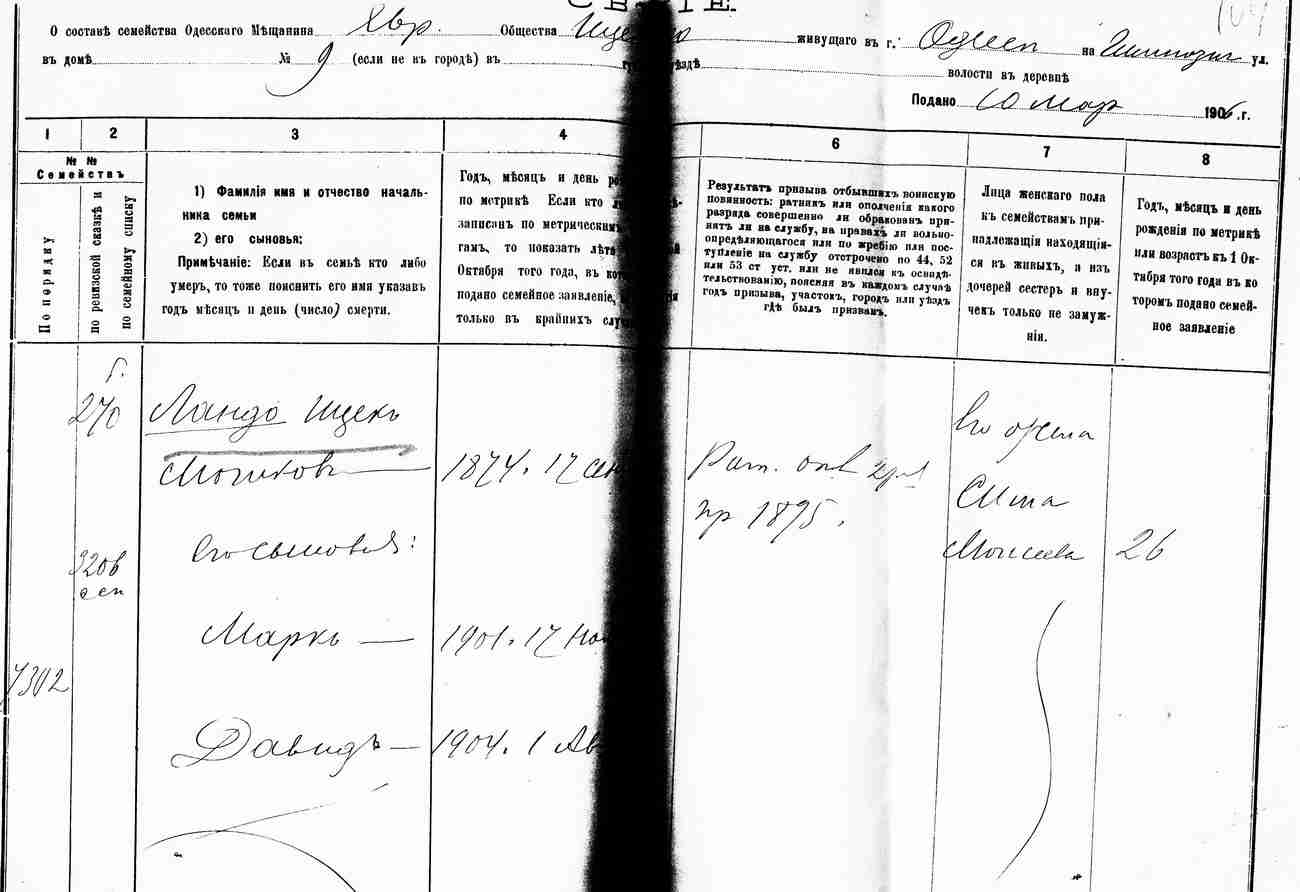 О составѣ семейства Одесскаго Мѣщанина Евр. Общества живущаго въ г. Одессѣ на ул.
въ домѣ № 9 (если не въ городѣ) въ уѣздѣ волости въ деревнѣ
Подано 10 Мар 190 г.
1 2 3 4 6 7 8
№ №
Семействъ
По порядку
по ревизской сказкѣ и
по семейному списку
1) Фамилія имя и отчество началь-
ника семьи
2) его сыновья;
Примѣчаніе: Если въ семьѣ кто либо
умеръ, то тоже пояснить его имя указавъ
годъ мѣсяцъ и день (число) смерти.
Годъ, мѣсяцъ и день
по метрикѣ Если кто
записан по метрическим
гамъ, то показать лѣта
Октября того года, въ
подано семейное заявленіе,
только въ крайних
Результатъ призыва отбывшихъ воинскую
повинность: ратник или ополченія какого
разряда совершенно ли обракован при-
нятъ ли на службу, на правахъ ли вольно-
опредѣляющагося или по жребію или пос-
тупленіе на службу отсрочено по 44, 52
или 53 ст уст. или не явился къ освидѣ-
тельствованію, поясняя въ каждомъ случаѣ
годъ призыва, участок, городъ или уѣздъ
гдѣ былъ призванъ.
Лица женскаго пола
къ семействамъ при-
надлежащія находящія-
ся въ живыхъ, а изъ
дочерей сестеръ и вну-
чекъ только не замуж-
нія.
Годъ, мѣсяцъ и день
рожденія по метрикѣ
или возрастъ къ 1 Ок-
тября того года въ ко
торомъ подано семей-
ное заявленіе
270 Ландо Ицекъ Его жена
Мошковъ 1874. 17 сен Рат. опл 2 раз Сима
пр 1895. Моисеева 26
320в Его сыновья:
сеп
Маркъ — 1901. 17 Но
7302
Давидъ — 1904. 1 Ав